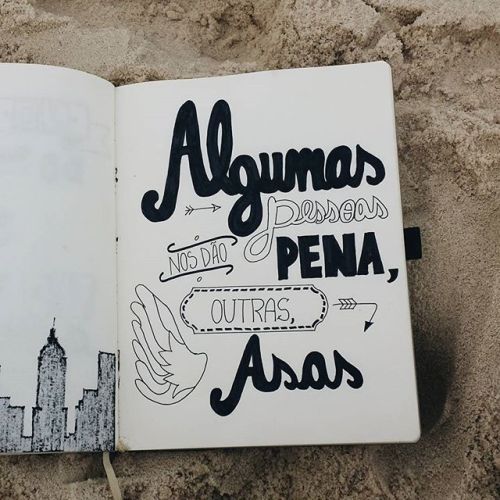 Algumas
pessoas
NOS DÃO
PENA,
OUTRAS,
Asas